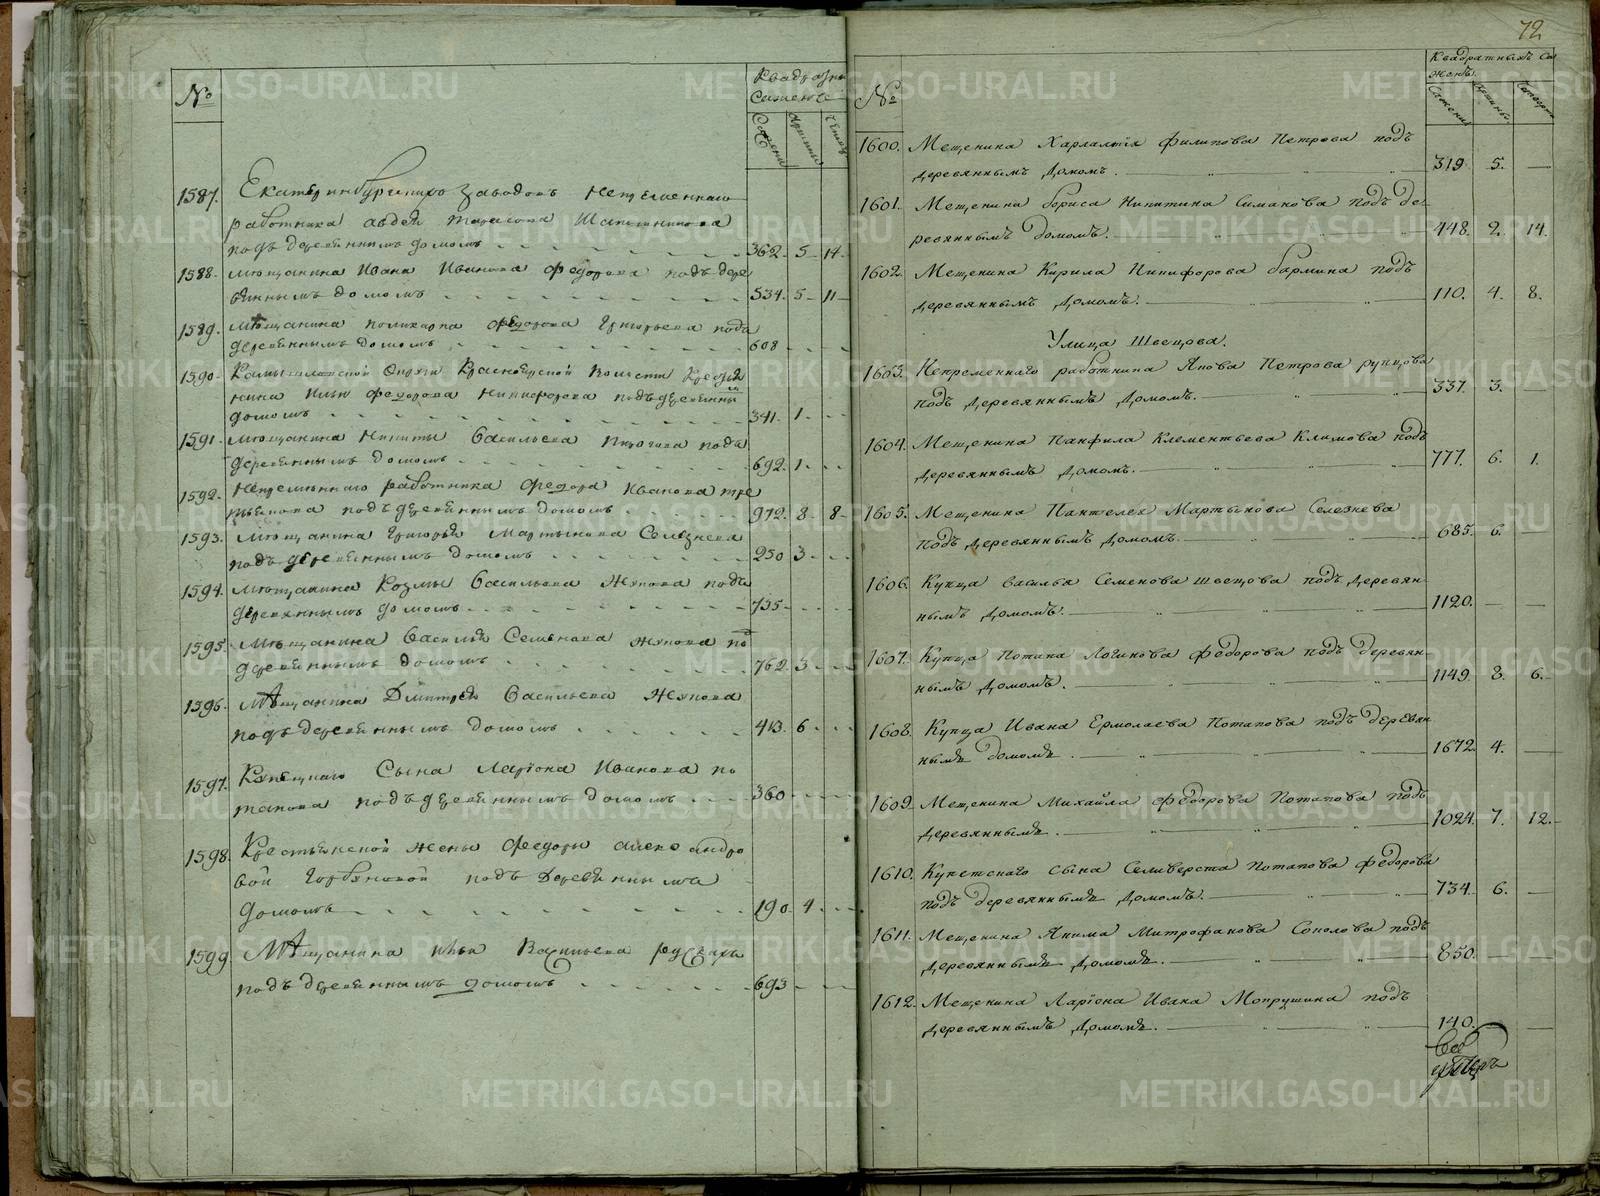 №
Квадратн
Сажень
Сажени Аршины Четвер
1587. Екатеринбургскихъ Заводовъ Непременнаго
работника авдея тарасова Шапошникова
подъ деревяннымъ домомъ 362. 5 14
1588. мещанина Ивана Иванова Федорова подъ дере
вяннымъ домомъ 534. 5 11
1589. мещанина поликарпа Федорова Григорьева подъ
деревяннымъ домомъ 608
1590. Камышловской Округи Красноярской волости Кресть
нина Ильи Федорова Никифорова подъ деревянны
домомъ 341. 1
1591. мещанина Никиты Васильева подъ
деревяннымъ домомъ 692. 1
1592. Непременнаго работника Федора Иванова тре
тьякова подъ деревяннымъ домомъ 972. 8 8
1593. мещанина Григорья Мартынова Селезнева
подъ деревяннымъ домомъ 250 3
1594. мещанина Козмы Васильева Жукова подъ
деревяннымъ домомъ 735
1595. мещанина Василья Семенова жукова по
деревяннымъ домомъ 762 3
1596. мещанина Дмитрея Васильева Жукова
подъ деревяннымъ домомъ 413. 6
1597. Купецкаго Сына Ларiона Иванова по
тапова подъ деревяннымъ домомъ 360
1598. Крестьянской жены Федоры александро
вой Горбуновой подъ Деревяннымъ
домомъ 190. 4
1599. Мещанина Ильи Васильева
подъ деревяннымъ домомъ 693
72
№
Квадратныхъ Са
жень.
Сажени Аршины Четверти
1600. Мещенина Харлампiя Филипова Петрова подъ
деревяннымъ домомъ. 319 5.
1601. Мещенина бориса Никитина Симанова подъ де-
ревяннымъ домомъ. 448. 2. 14.
1602. Мещенина Кирила Никифорова бармина подъ
деревяннымъ домомъ. 110. 4. 8.
Улица Швецова.
1603. Непременнаго работника Якова Петрова рупцова
подъ деревяннымъ домомъ. 337. 3.
1604. Мещенина Панфила Клементьева Климова подъ
деревяннымъ домомъ. 777. 6. 1.
1605. Мещенина Пантелея Мартынова Селезнева
подъ деревяннымъ домомъ. 685. 6.
1606. Купца василья Семенова швецова подъ деревян
нымъ домомъ. 1120.
1607. Купца Потапа Логинова федорова подъ деревян
нымъ домомъ. 1149. 8. 6.
1608. Купца Ивана Ермолаева Потапова подъ деревян
нымъ домомъ. 1672 4.
1609. Мещенина Михайла федорова Потапова подъ
деревяннымъ. 1024. 7. 12.
1610. Купетскаго сына Селиверста Потапова федорова
подъ деревяннымъ домомъ. 734. 6.
1611. Мещенина Якима Митрофанова Соколова подъ
деревяннымъ домомъ. 850.
1612. Мещенина Ларiона Ивана Мокрушина подъ
деревяннымъ домомъ. 140.
METRIKI.GASO-URAL.RU